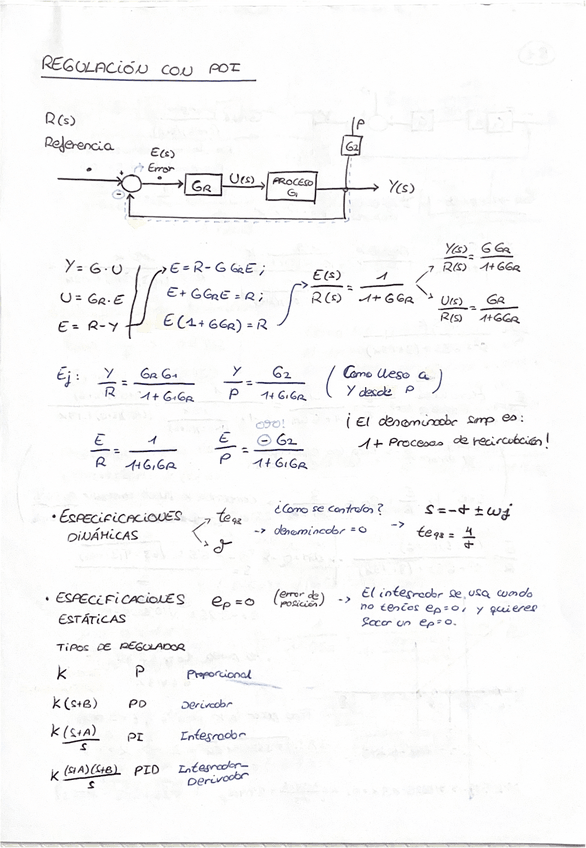 REGULACIÓN CON PDI
R(s)
Referencia
E(s)
Error
+
-
GR
U(s)
PROCESO
G1
P
G2
Y(s)
Y = G·U
U = GR·E
E = R-Y
E = R - G GR E;
E + G GR E = R;
E (1 + G GR) = R
E(s)/R(s) = 1/(1+GGR)
Y(s)/R(s) = G GR/(1+GGR)
U(s)/R(s) = GR/(1+GGR)
Ej: Y/R = GR G1/(1+G1GR) Y/P = G2/(1+G1GR) (Como llego a Y desde P)
E/R = 1/(1+G1GR) E/P = -G2/(1+G1GR)
ojo!
¡ El denominador smp es:
1 + Procesos de recirculación !
· ESPECIFICACIONES DINÁMICAS
te98
¿Como se controlan?
-> denominador = 0 ->
s = -σ ± ωj
te98 = 4/σ
σ
· ESPECIFICACIONES ESTÁTICAS
ep = 0 (error de posición) ->
El integrador se usa cuando
no tenías ep=0, y quieres
sacar un ep=0.
TIPOS DE REGULADOR
K P Proporcional
K(s+B) PD Derivador
K (s+A)/s PI Integrador
K (s+A)(s+B)/s PID Integrador-
Derivador